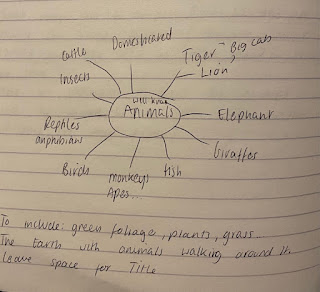 Domesticated
cattle
Tiger - Big cats
Lion
Insects
Animals
Elephant
Reptiles
amphibians
Giraffes
Birds
monkeys
Apes...
fish
To include: green foliage, plants, grass
The Earth with animals walking around it.
Leave space for Title